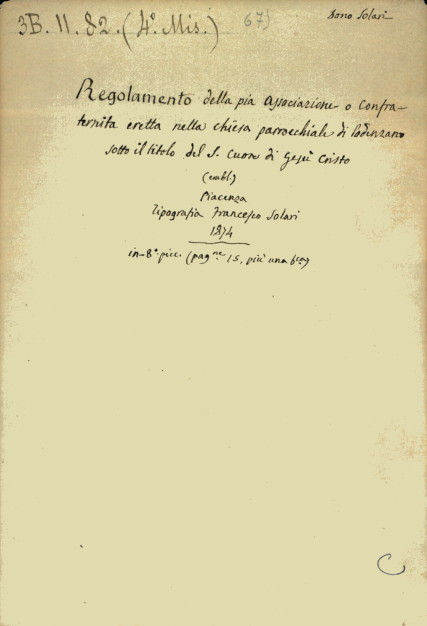 3B. 11. 82. (4° Mis.) 67) Dono Solari
Regolamento della pia Associazione o Confra-
ternita eretta nella chiesa parrocchiale di Podenzano
sotto il titolo del S. Cuore di Gesù Cristo
(embl.)
Piacenza
Tipografia Francesco Solari
1874
in-8° picc. (pag.ne 15, più una b.ca)
C